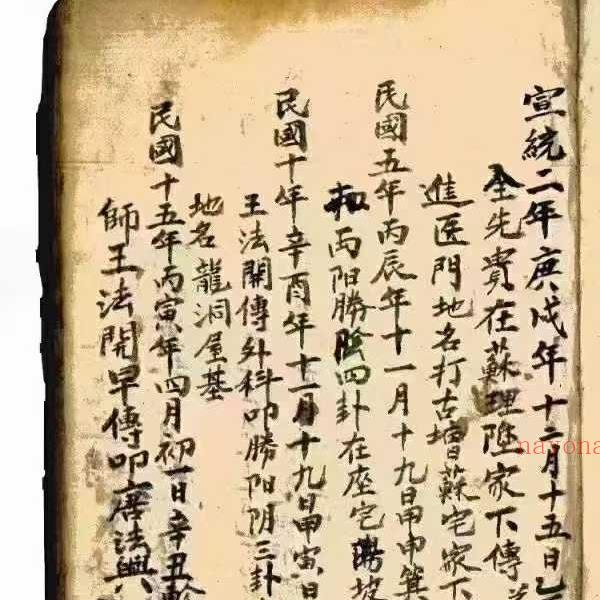 宣統二年庚戌年十二月十五日乙
全先貴在蘇理陞家下傳
進医門地名打古塘蘇宅家下
民國五年丙辰年十一月十九日甲申箕
丙阳勝陰四卦在座宅
民國十年辛酉年十一月十九日甲寅日
王法開傳外科叩勝阳阴三卦
地名龍洞屋基
民國十五年丙寅年四月初一日辛丑
師王法開早傳叩唐法興
nayona